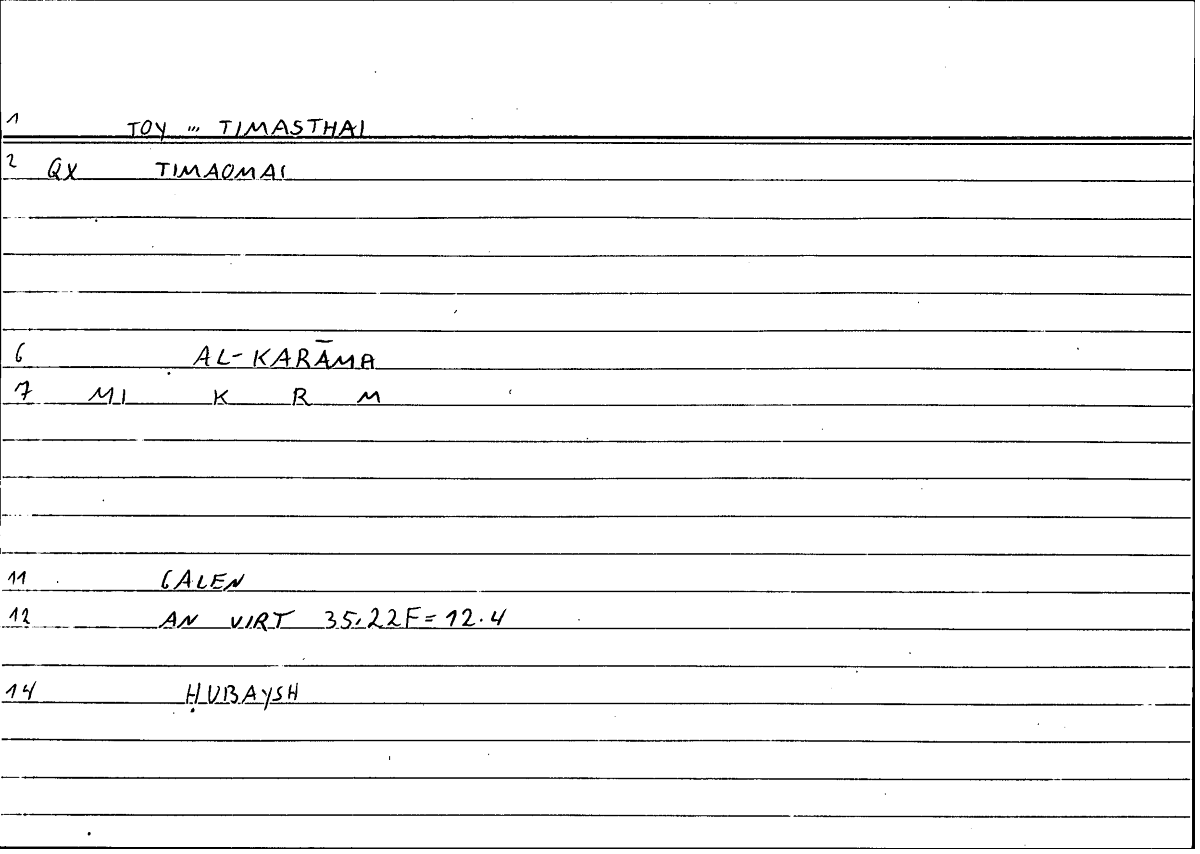 1 TOY ... TIMASTHAI
2 QX TIMAOMAI
6 AL-KARĀMA
7 MI K R M
11 GALEN
12 AN VIRT 35,22F=12.4
14 ḤUBAYSH